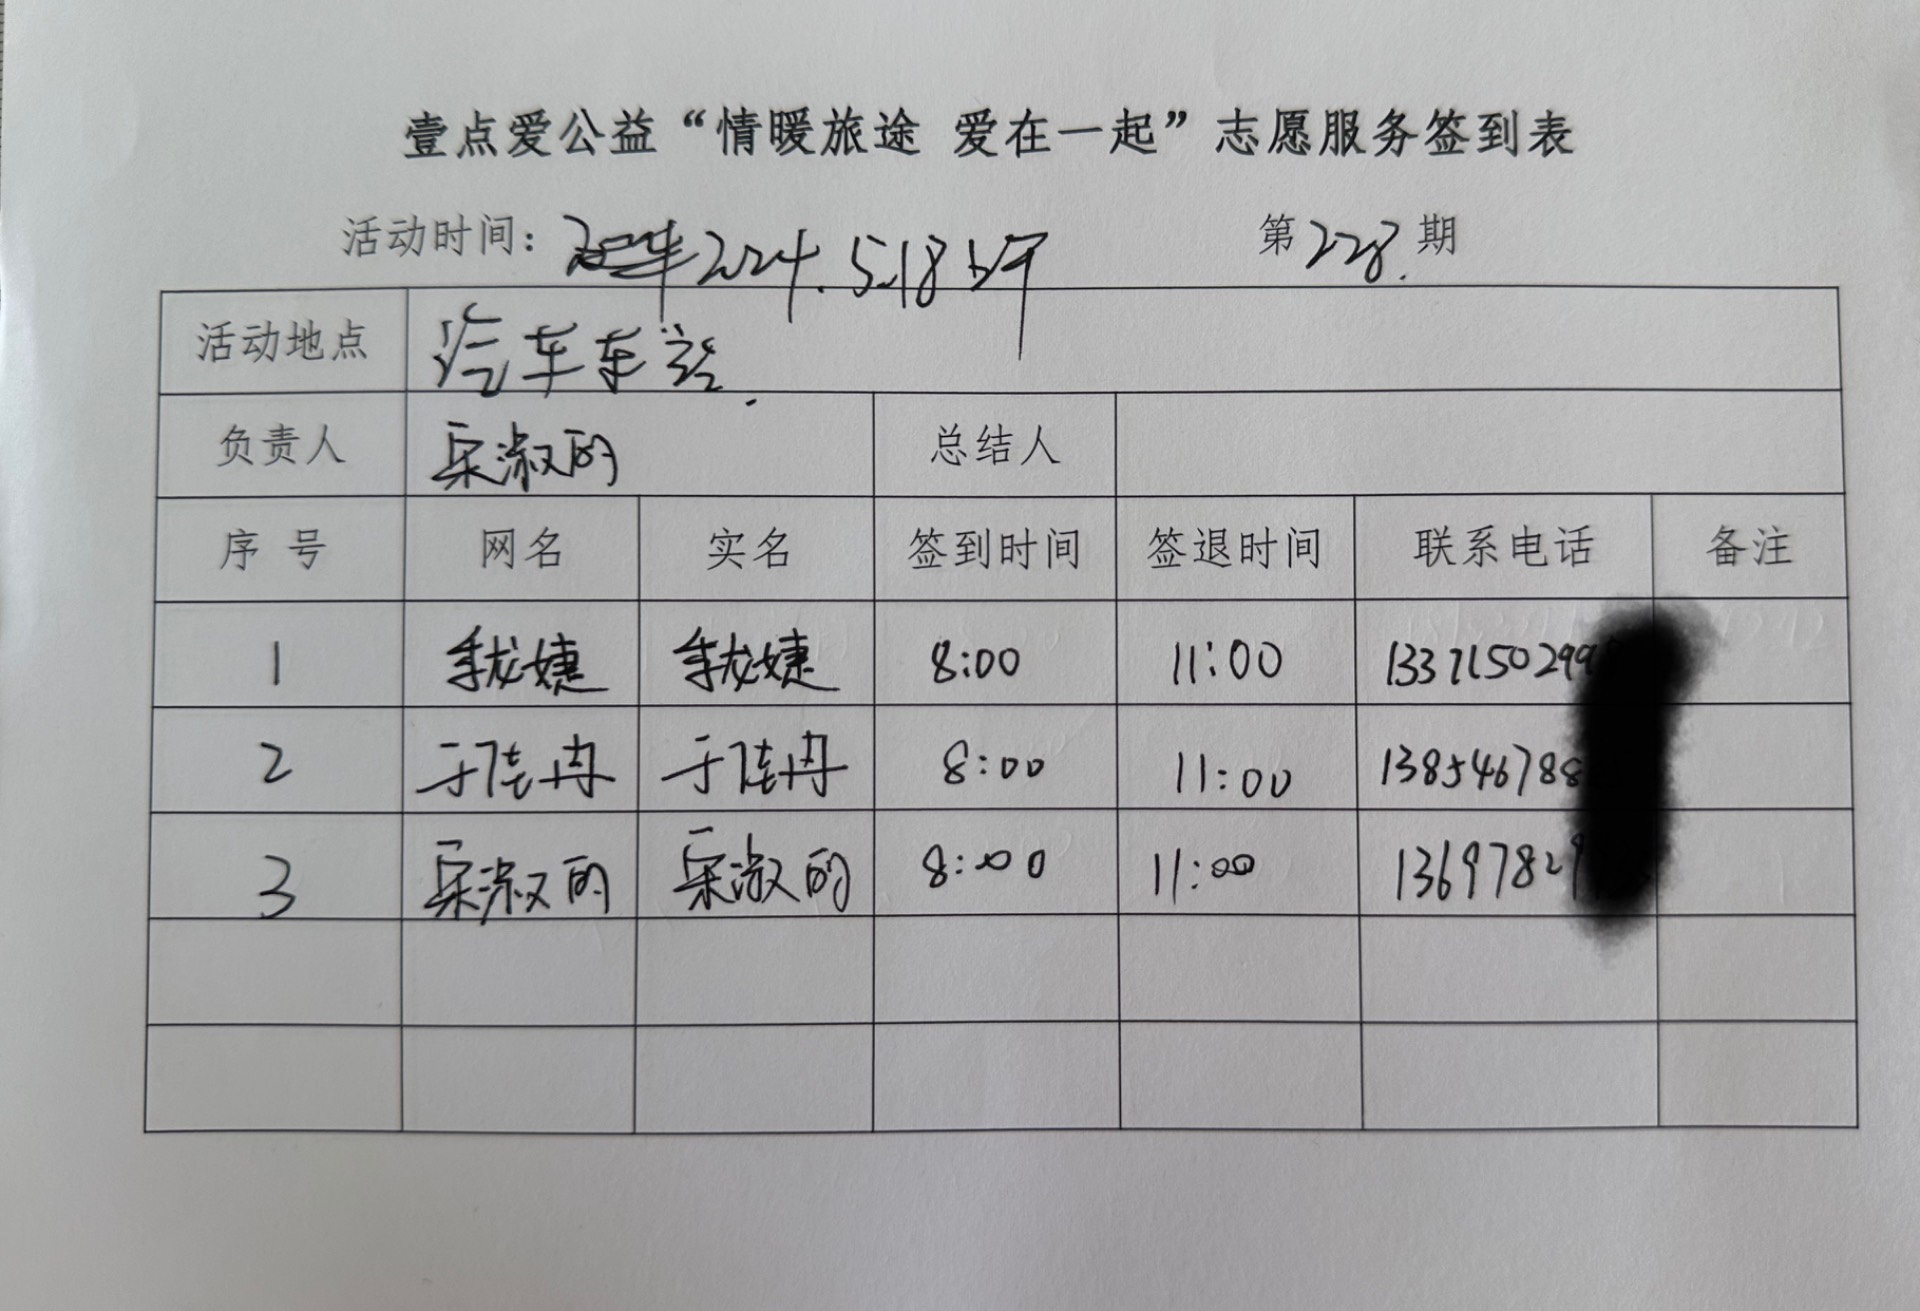 壹点爱公益“情暖旅途 爱在一起”志愿服务签到表
活动时间： 2024.5.18上午 第228.期
活动地点 汽车车站.
负责人 宋淑 总结人
序号 网名 实名 签到时间 签退时间 联系电话 备注
1 婕 婕 8:00 11:00 133715029
2 于佳冉 于佳冉 8:00 11:00 138546788
3 宋淑 宋淑 8:00 11:00 13697829